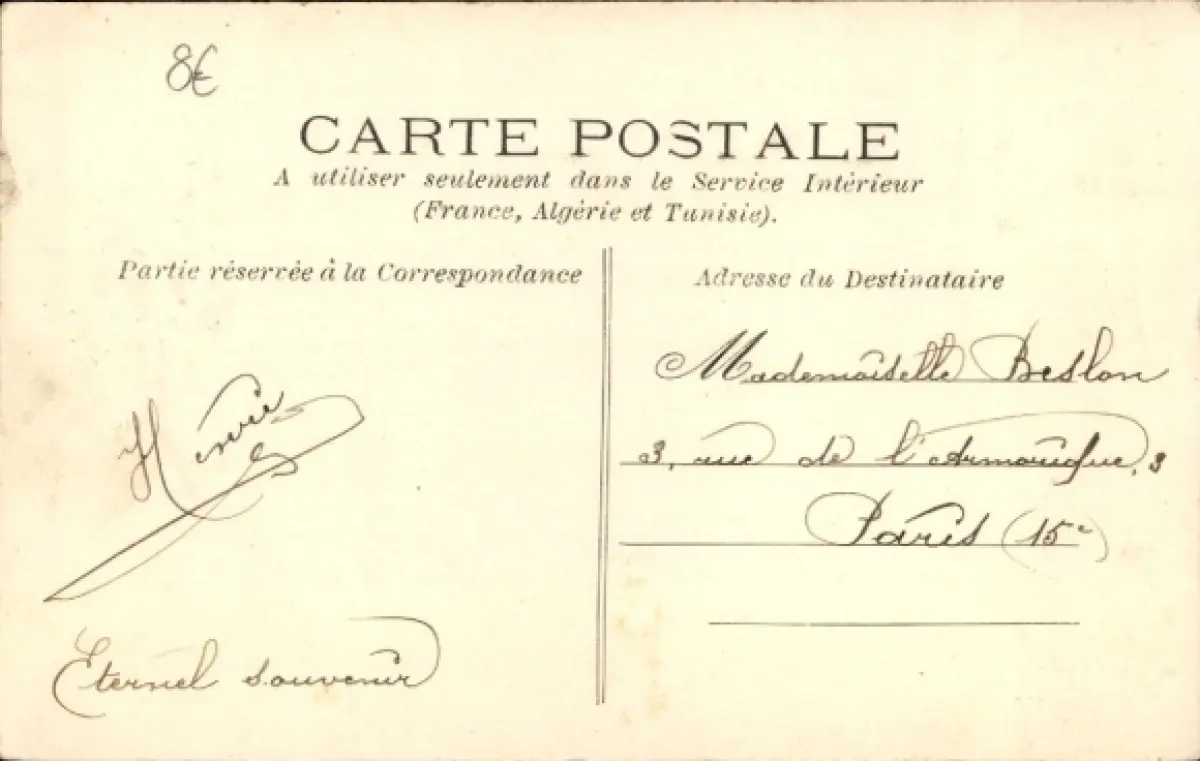 8€
CARTE POSTALE
A utiliser seulement dans le Service Intérieur
(France, Algérie et Tunisie).
Partie réservée à la Correspondance
Adresse du Destinataire
Mademoiselle Beslon
3, rue de l'Armorique, 3
Paris (15e)
Eternel souvenir